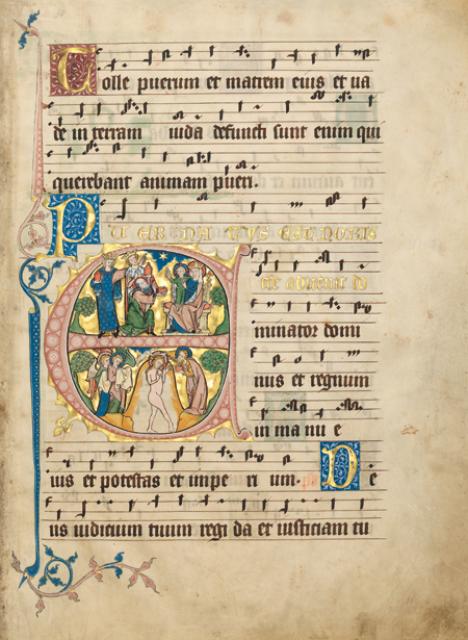 Tolle puerum et matrem eius et ua
de in terram iuda defuncti sunt enim qui
querebant animam pueri.
PU ER NA TUS EST NOBIS
Ecce aduenit do
minator domi
nus et regnum
in ma nu e
ius et potestas et impe ri um. De
us iudicium tuum regi da et iusticiam tu